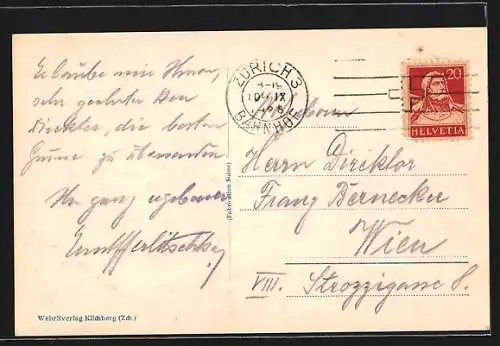 Erlaube mir Ihnen,
sehr geehrter Herr
Direktor, die besten
Grüsse zu übersenden
Ihr ganz ergebener
ZÜRICH 3
BAHNHOF
20
HELVETIA
Herrn Direktor
Franz Bernecker
Wien
VIII. Strozzigasse 8.
(Fabrication Suisse)
Wehrliverlag Kilchberg (Zch.)